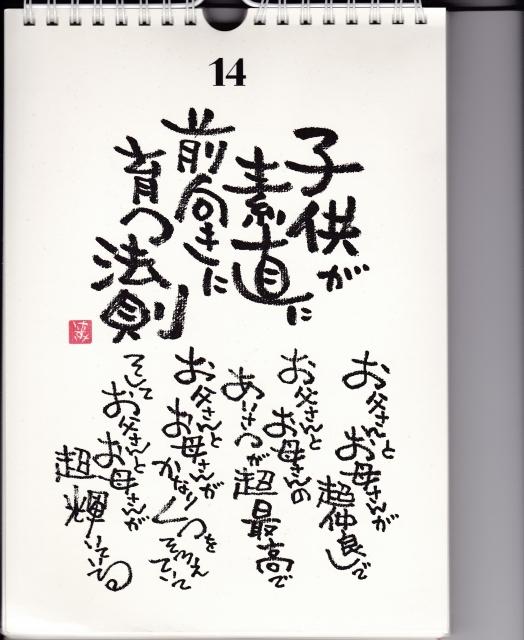 14
子供が
素直に
前向きに
育つ法則
お父さんと
お母さんが
超仲良しで
お父さんと
お母さんの
あいさつが
超最高で
お父さんと
お母さんが
かならずくつを
そろえていて
そして
お父さんと
お母さんが
超輝いている